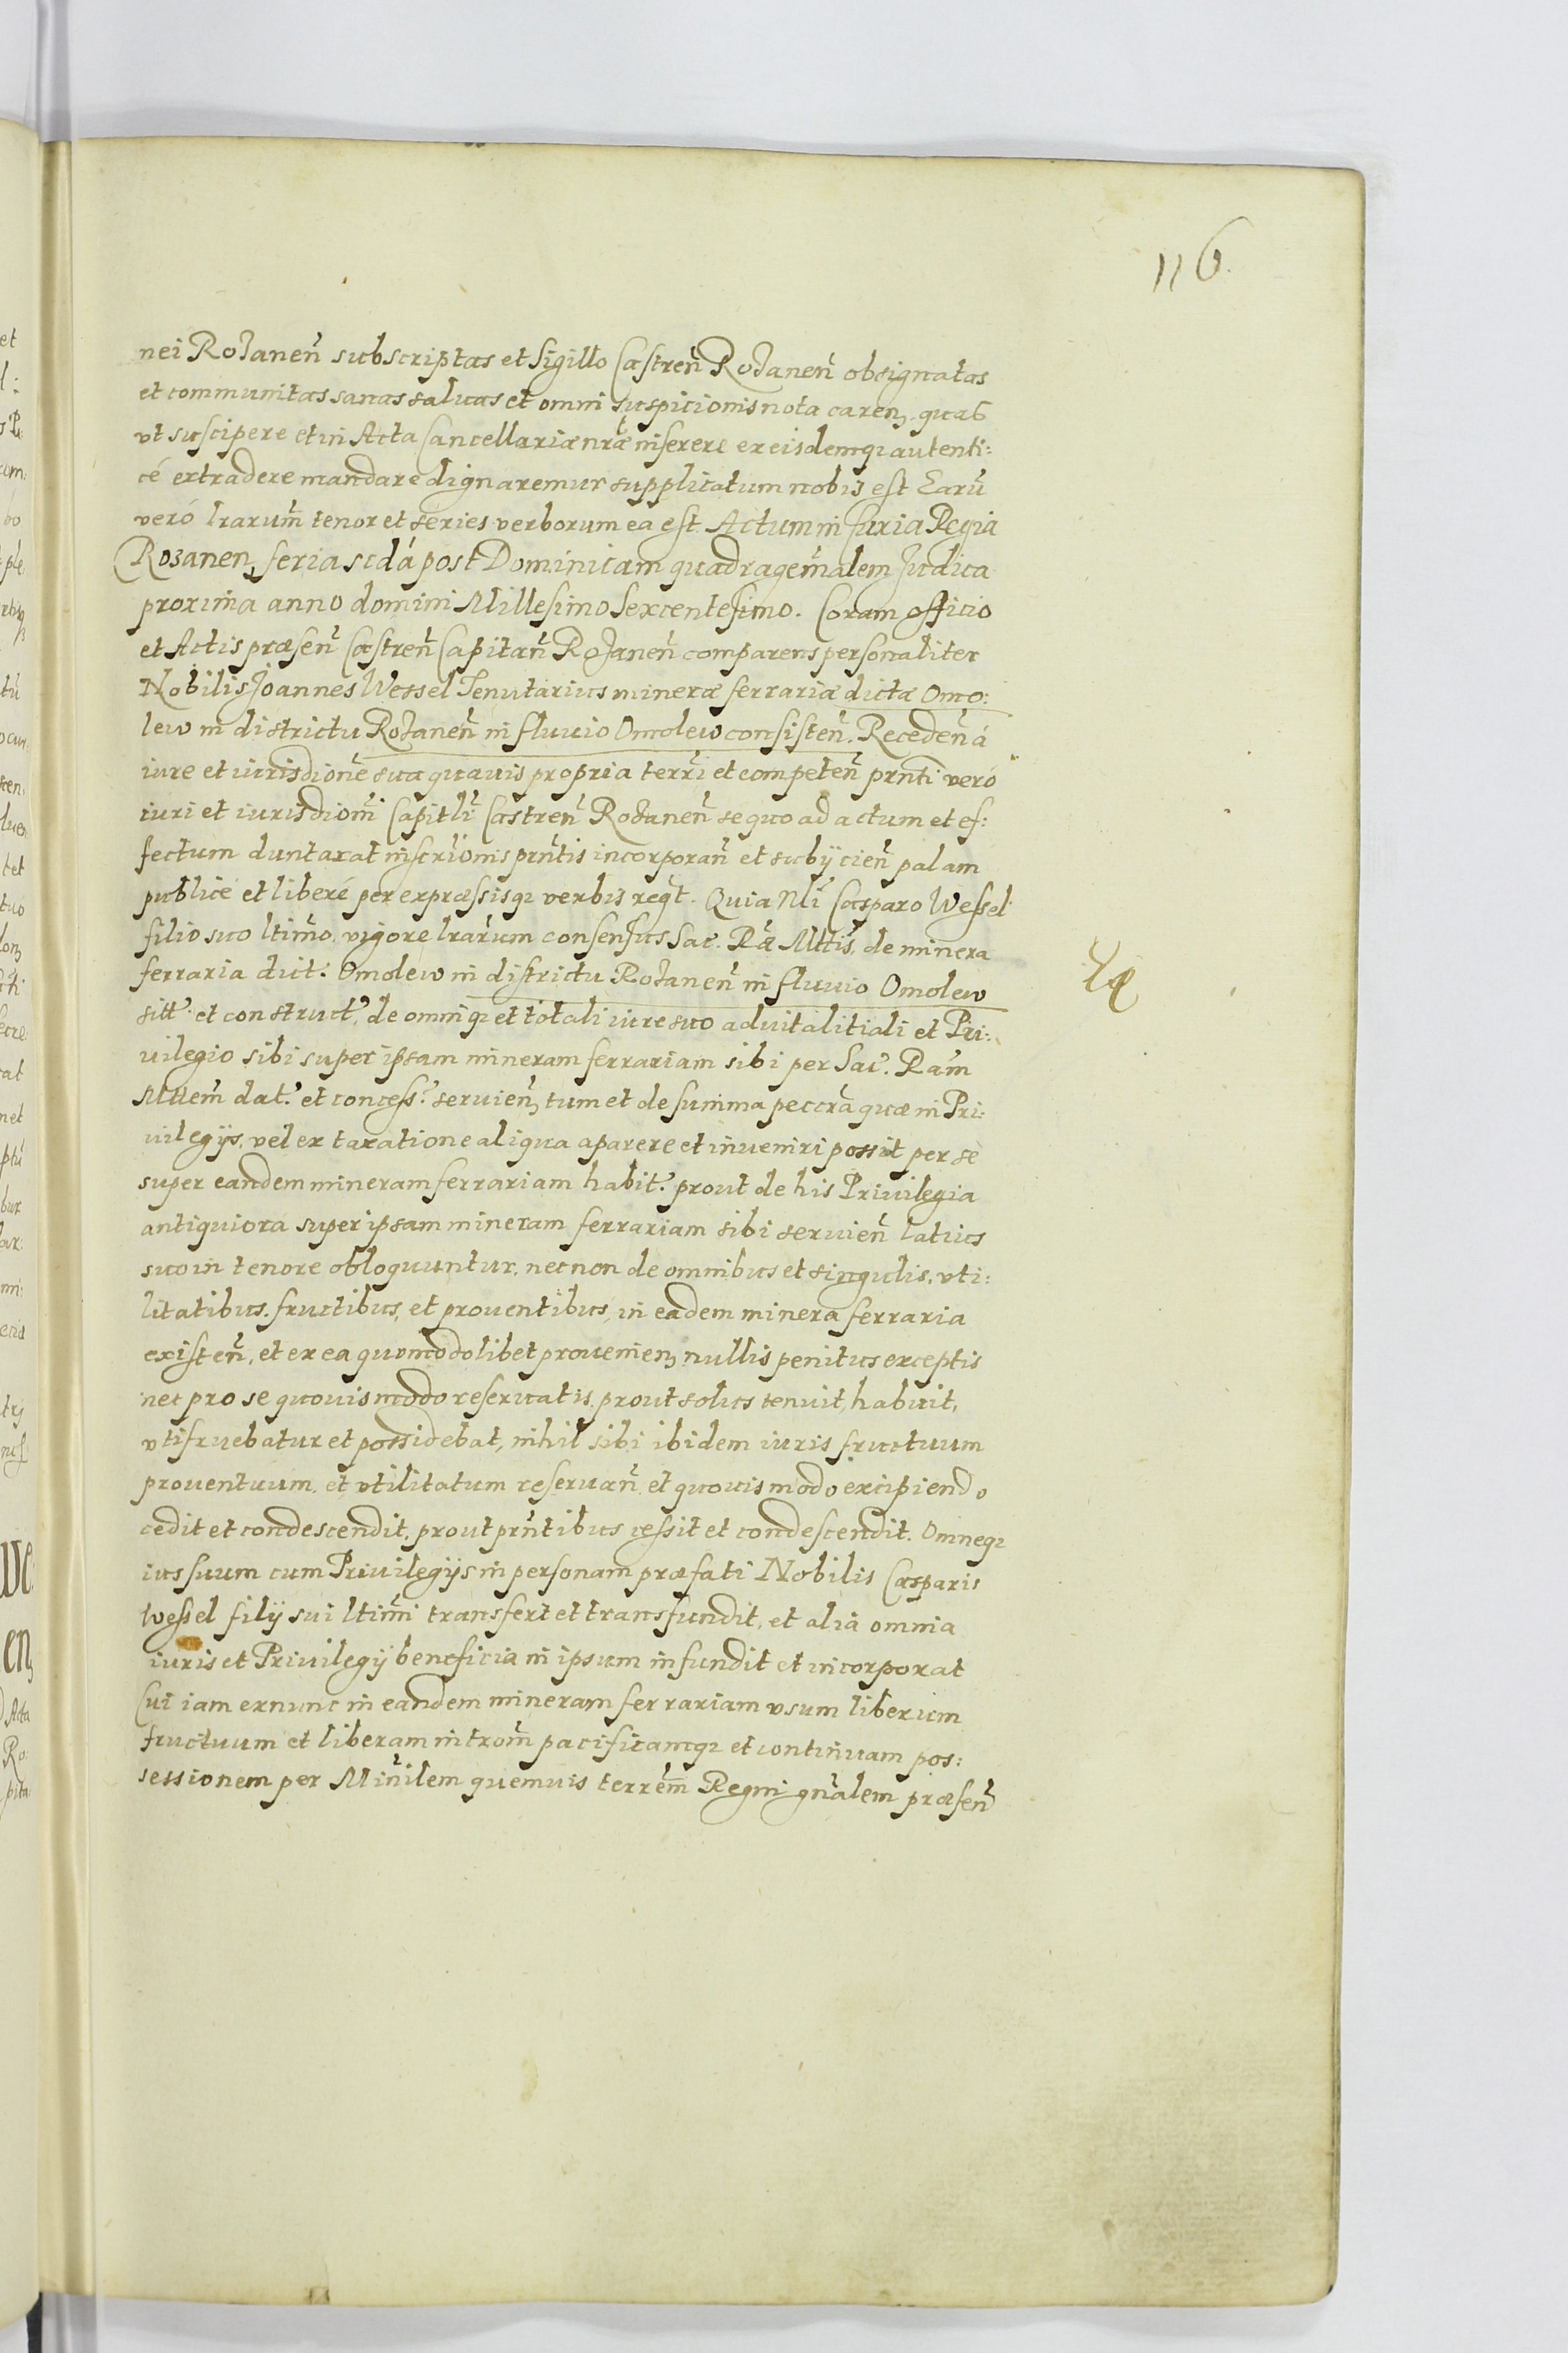 116.
nei Rożaneñ subscriptas et Sigillo Castreñ Rożaneñ obsignatas
et communitas sanas saluas et omni suspicionis nota careñ, quas
vt suscipere et in Acta Cancellariæ nrǽ inserere ex eisdemq; autenti:
cé extradere mandare dignaremur supplicatum nobis est Earũ
veró lrarum̃ tenor et series verborum ea est. Actum in Curia Regia
Rozaneñ, feria scdá post Dominicam quadragem̃alem Judica
proxima anno domini Millesimo Sexcentesimo. Coram officio
et Actis præseñ Castreñ Capitañ Rożaneñ comparens personaliter
Nobilis Joannes Wessel Tenutarius mineræ ferrariæ dictæ Omo:
lew in districtu Rożaneñ in fluuio Omolew consisteñ. Recedeñ á
iure et iurisdione sua quauis propria terri et competeñ prnti veró
iuri et iurisdiom̃ Capitli Castreñ Rożaneñ se quo ad actum et ef:
fectum duntaxat inscrĩonis prñtis incorporañ et subÿcieñ palam
publicé et liberé per expræssisq; verbis reqt. Quia Nli Casparo Wessel
filio suo ltim̃o, vigore lrarum consensus Sac. Ræ Mttis, de minera
ferraria dict. Omolew in districtu Rożaneñ in fluuio Omolew
sitt. et construct. de omniq; et totali iure suo aduitalitiali et Pri:
uilegio sibi super ipsam mineram ferrariam sibi per Sac. Ram̃
Mttem̃ dat. et concess. seruieñ, tum et de summa peccra quæ in Pri:
uilegijs, vel ex taxatione aliqua aparere et inueniri possit per se
super eandem mineram ferrariam habit. prout de his Priuilegia
antiquiora super ipsam mineram ferrariam sibi seruieñ latius
suo in tenore obloquuntur, necnon de omnibus et singulis, vti:
litatibus, fructibus, et prouentibus, in eadem minera ferraria
existeñ, et ex ea quomodolibet prouenieñ, nullis penitus exceptis
nec pro se quouismodo reseruatis, prout solus tenuit, habuit,
vtifruebatur et possidebat, nihil sibi ibidem iuris fructuum
prouentuum, et vtilitatum reseruañ, et quouismodo excipiendo
cedit et condescendit, prout prñtibus cessit et condescendit. Omneq;
ius suum cum Priuilegijs in personam præfati Nobilis Casparis
Wessel filÿ sui ltim̃i transfert et transfundit, et alia omnia
iuris et Priuilegÿ beneficia in ipsum infundit et incorporat
Cui iam exnunc in eandem mineram ferrariam vsum liberum
fructuum et liberam introm̃ pacificamq; et continuam pos:
sessionem per Miñilem quemuis terrem̃ Regni gñalem præseñ